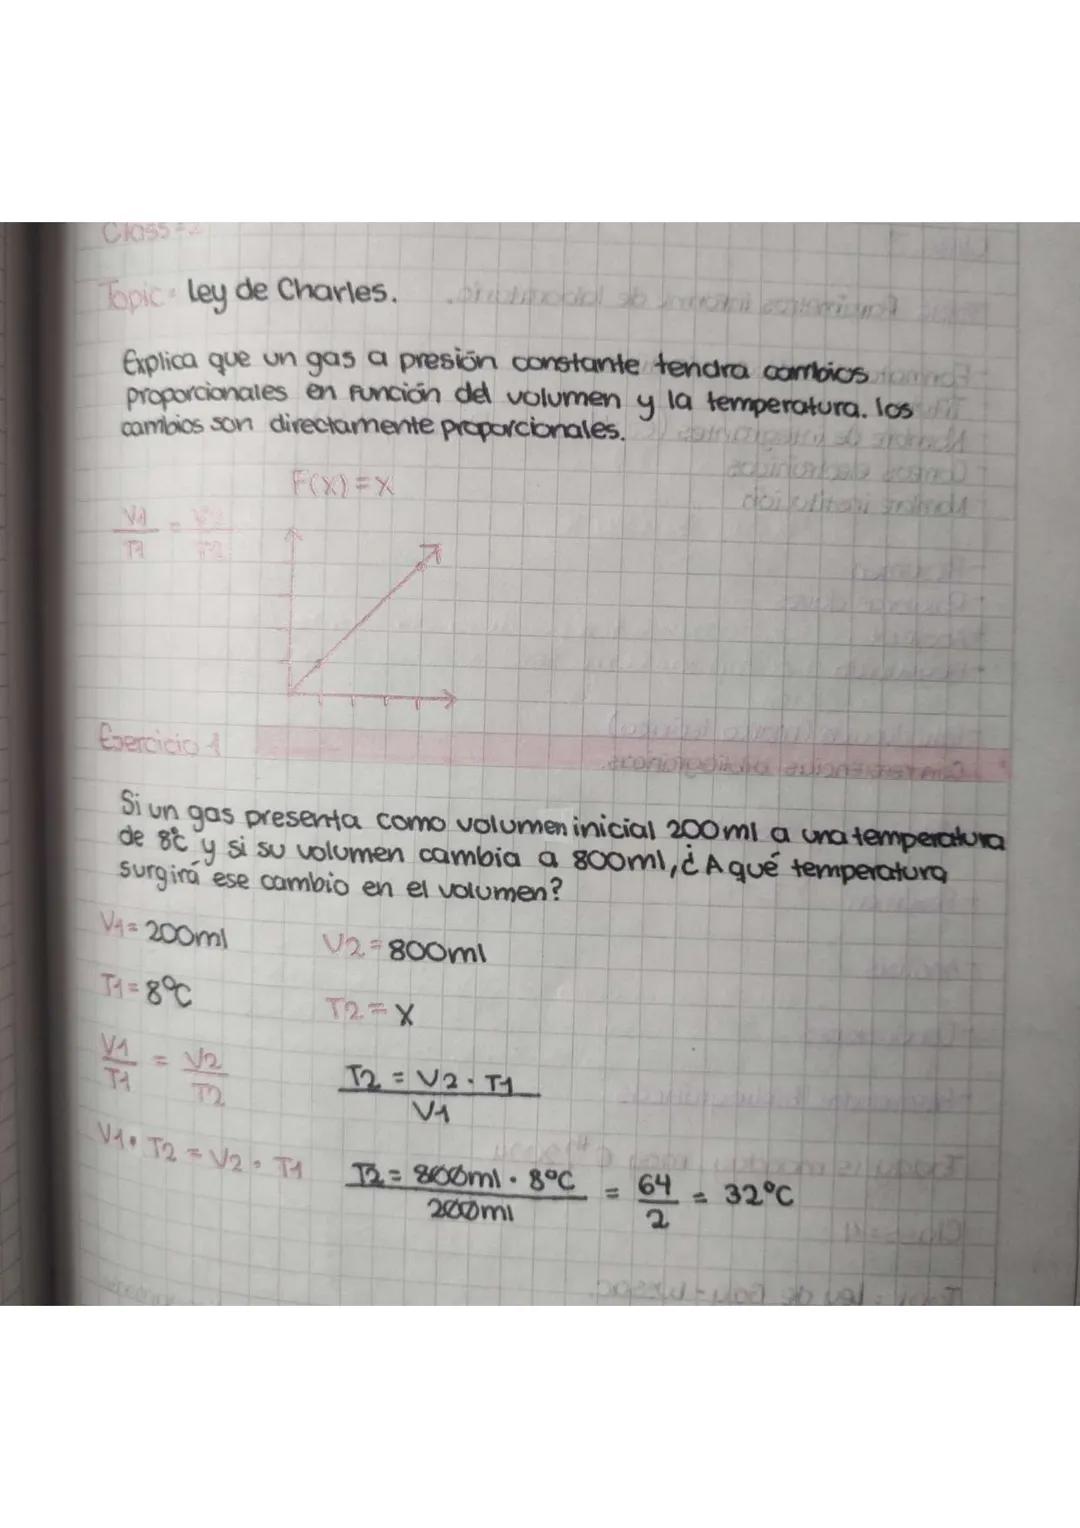 Class=2
Topic= Ley de Charles.
Explica que un gas a presión constante tendra cambios
proporcionales en función del volumen y la temperatura. los
cambios son directamente proporcionales.
F(x) = x
V1/T1 = V2/T2
Ejercicio 1
Si un gas presenta como volumen inicial 200ml a una temperatura
de 8°c y si su volumen cambia a 800ml, ¿A qué temperatura
surgirá ese cambio en el volumen?
V1= 200ml V2= 800ml
T1= 8°C T2= X
V1/T1 = V2/T2 T2 = V2 · T1 / V1
V1 · T2 = V2 · T1 T2= 800ml · 8°C / 200ml = 64/2 = 32°C